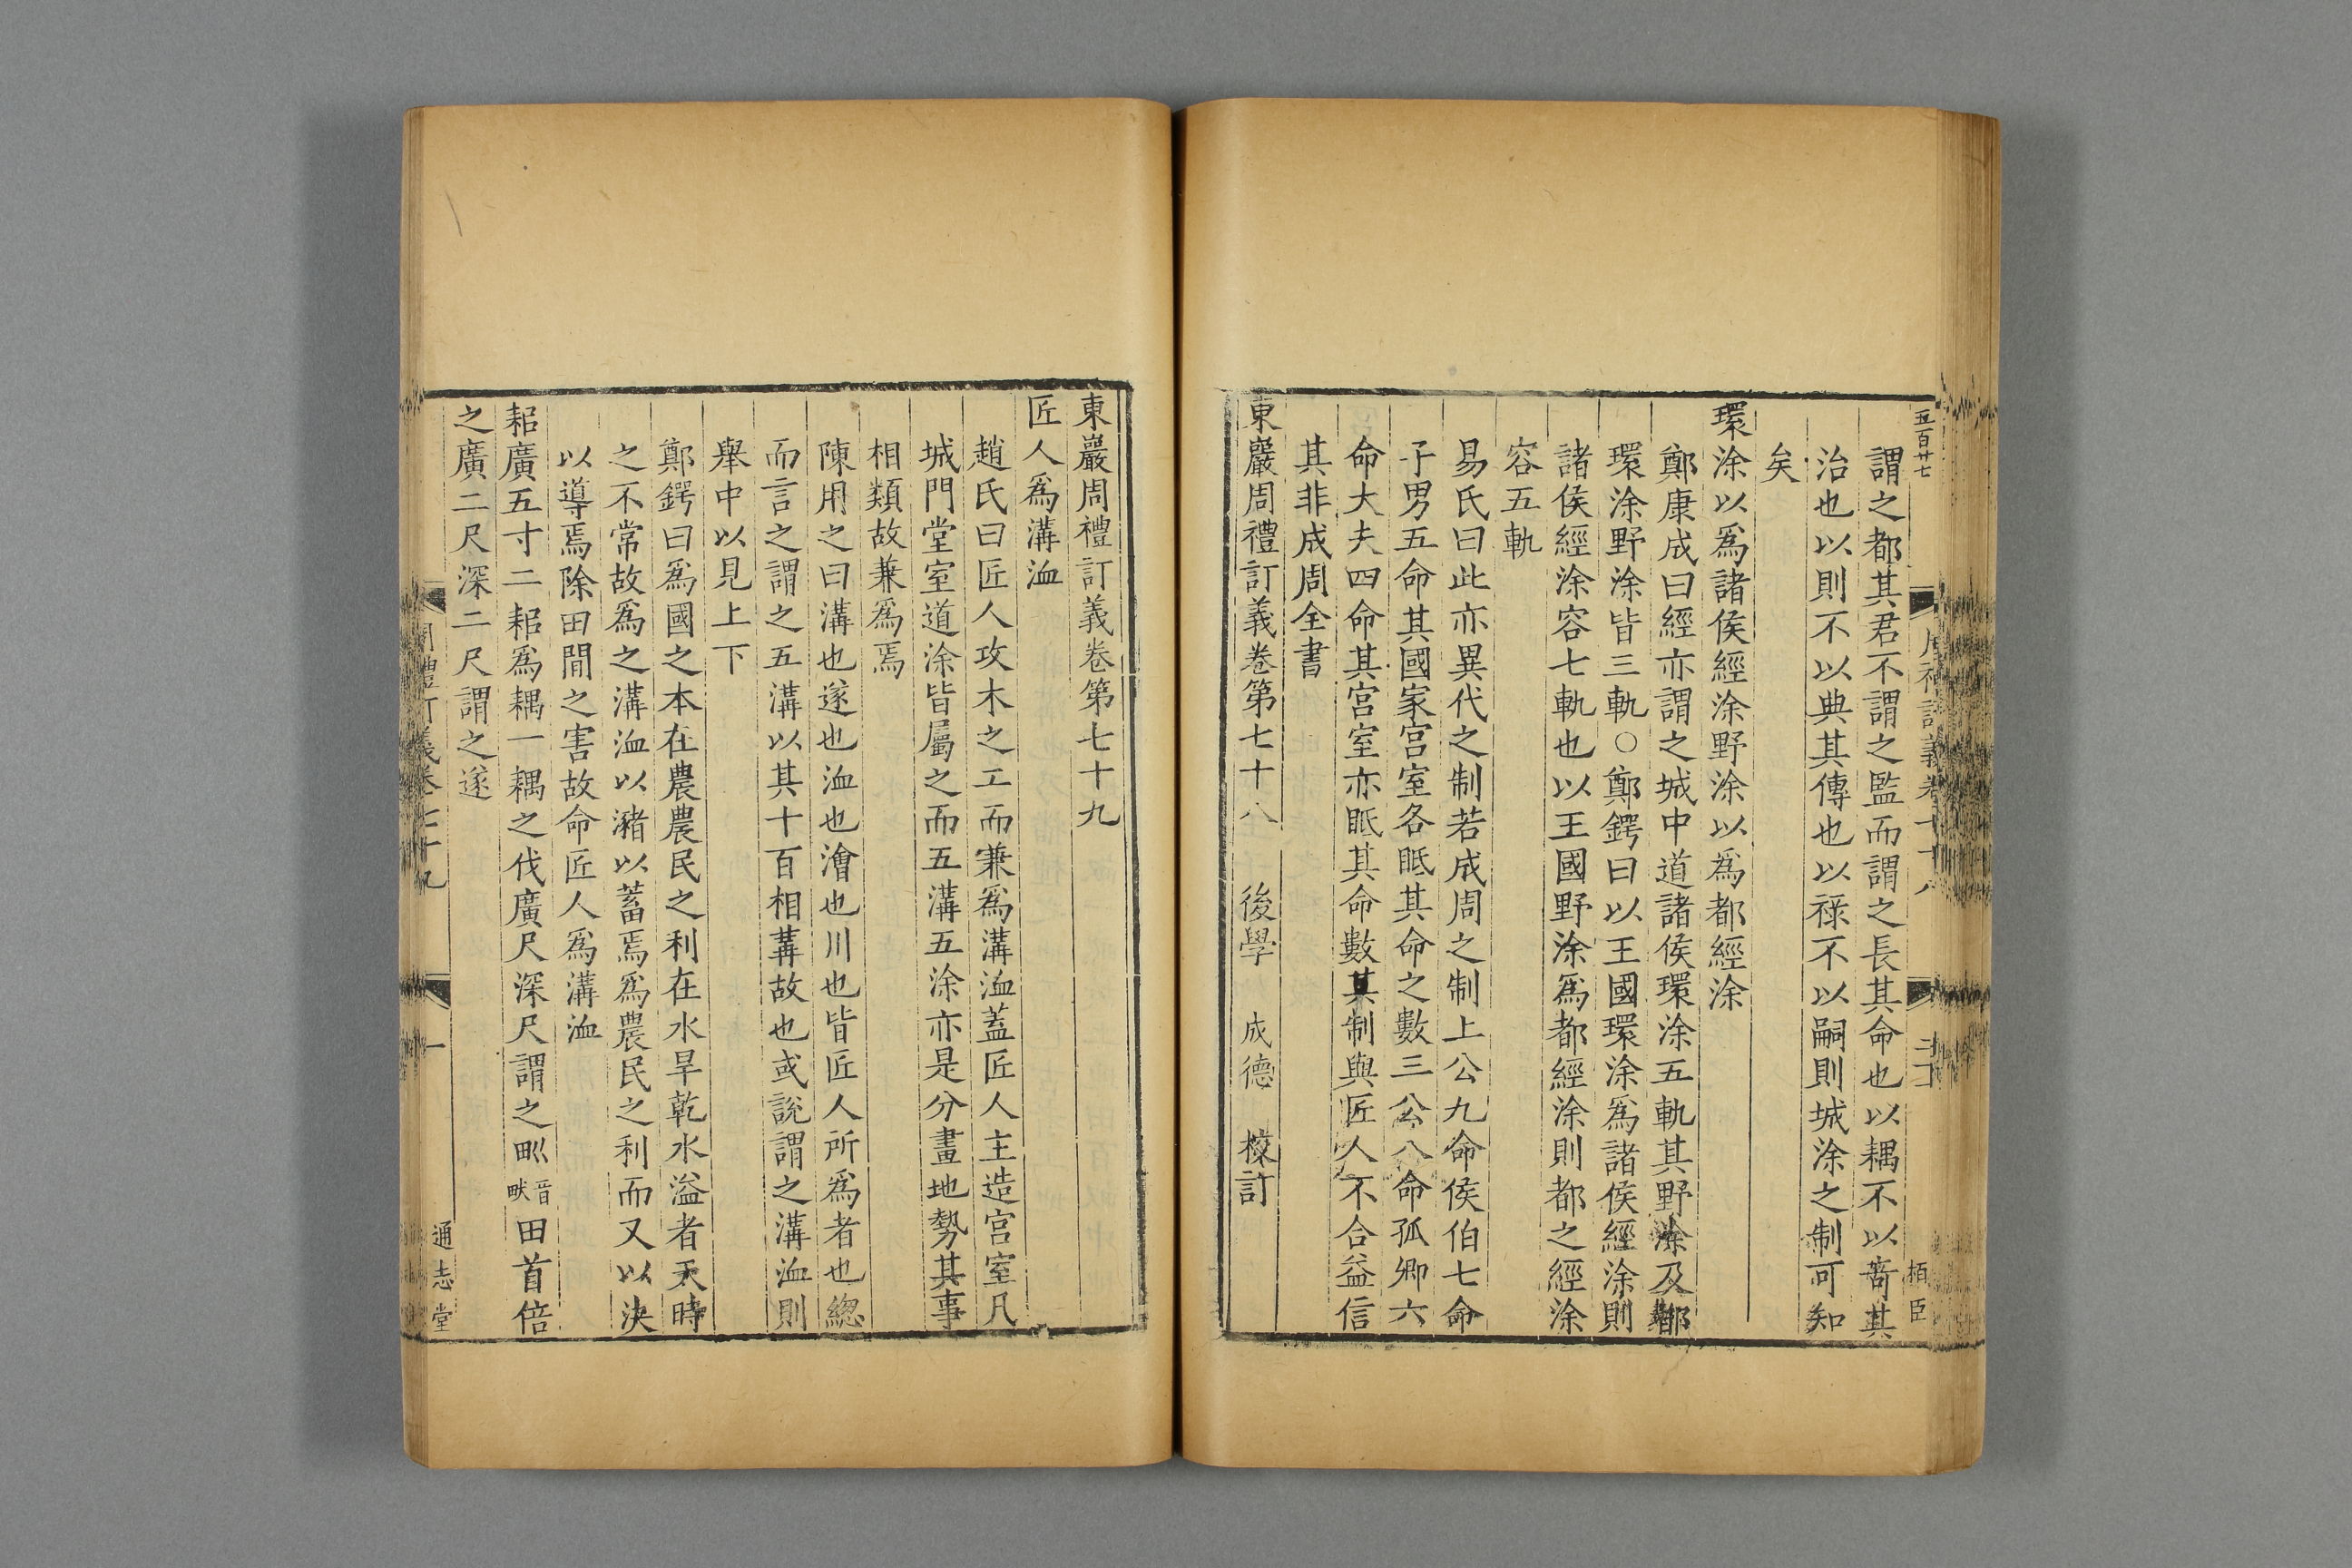 五百廿七
謂之都其君不謂之監而謂之長其命也以耦不以奇其
治也以則不以典其傳也以祿不以嗣則城涂之制可知
矣
環涂以爲諸侯經涂野涂以爲都經涂
鄭康成曰經亦謂之城中道諸侯環涂五軌其野涂及都
環涂野涂皆三軌○鄭鍔曰以王國環涂爲諸侯經涂則
諸侯經涂容七軌也以王國野涂爲都經涂則都之經涂
容五軌
易氏曰此亦異代之制若成周之制上公九命侯伯七命
子男五命其國家宮室各眡其命之數三公八命孤卿六
命大夫四命其宮室亦眡其命數其制與匠人不合益信
其非成周全書
東巖周禮訂義卷第七十八 後學 成德 校訂
東巖周禮訂義卷第七十九
匠人爲溝洫
趙氏曰匠人攻木之工而兼爲溝洫蓋匠人主造宮室凡
城門堂室道涂皆屬之而五溝五涂亦是分畫地勢其事
相類故兼爲焉
陳用之曰溝也遂也洫也澮也川也皆匠人所爲者也總
而言之謂之五溝以其十百相冓故也或說謂之溝洫則
舉中以見上下
鄭鍔曰爲國之本在農農民之利在水旱乾水溢者天時
之不常故爲之溝洫以瀦以蓄焉爲農民之利而又以決
以導焉除田間之害故命匠人爲溝洫
耜廣五寸二耜爲耦一耦之伐廣尺深尺謂之𤰕音畎田首倍
之廣二尺深二尺謂之遂
周禮訂義卷七十九 一
通志堂